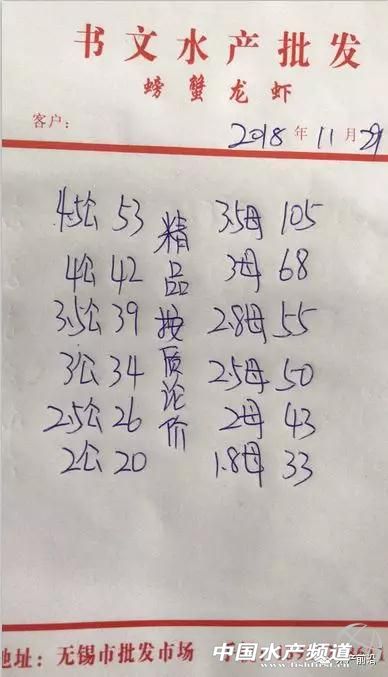 书文水产批发
螃蟹龙虾
客户：
2018年11月29
4.5公 53
4公 42
3.5公 39
3公 34
2.5公 26
2公 20
精品按质论价
3.5母 105
3母 68
2.8母 55
2.5母 50
2母 43
1.8母 33
地址：无锡市批发市场
中国水产频道
www.fishfirst.cn
水产前沿